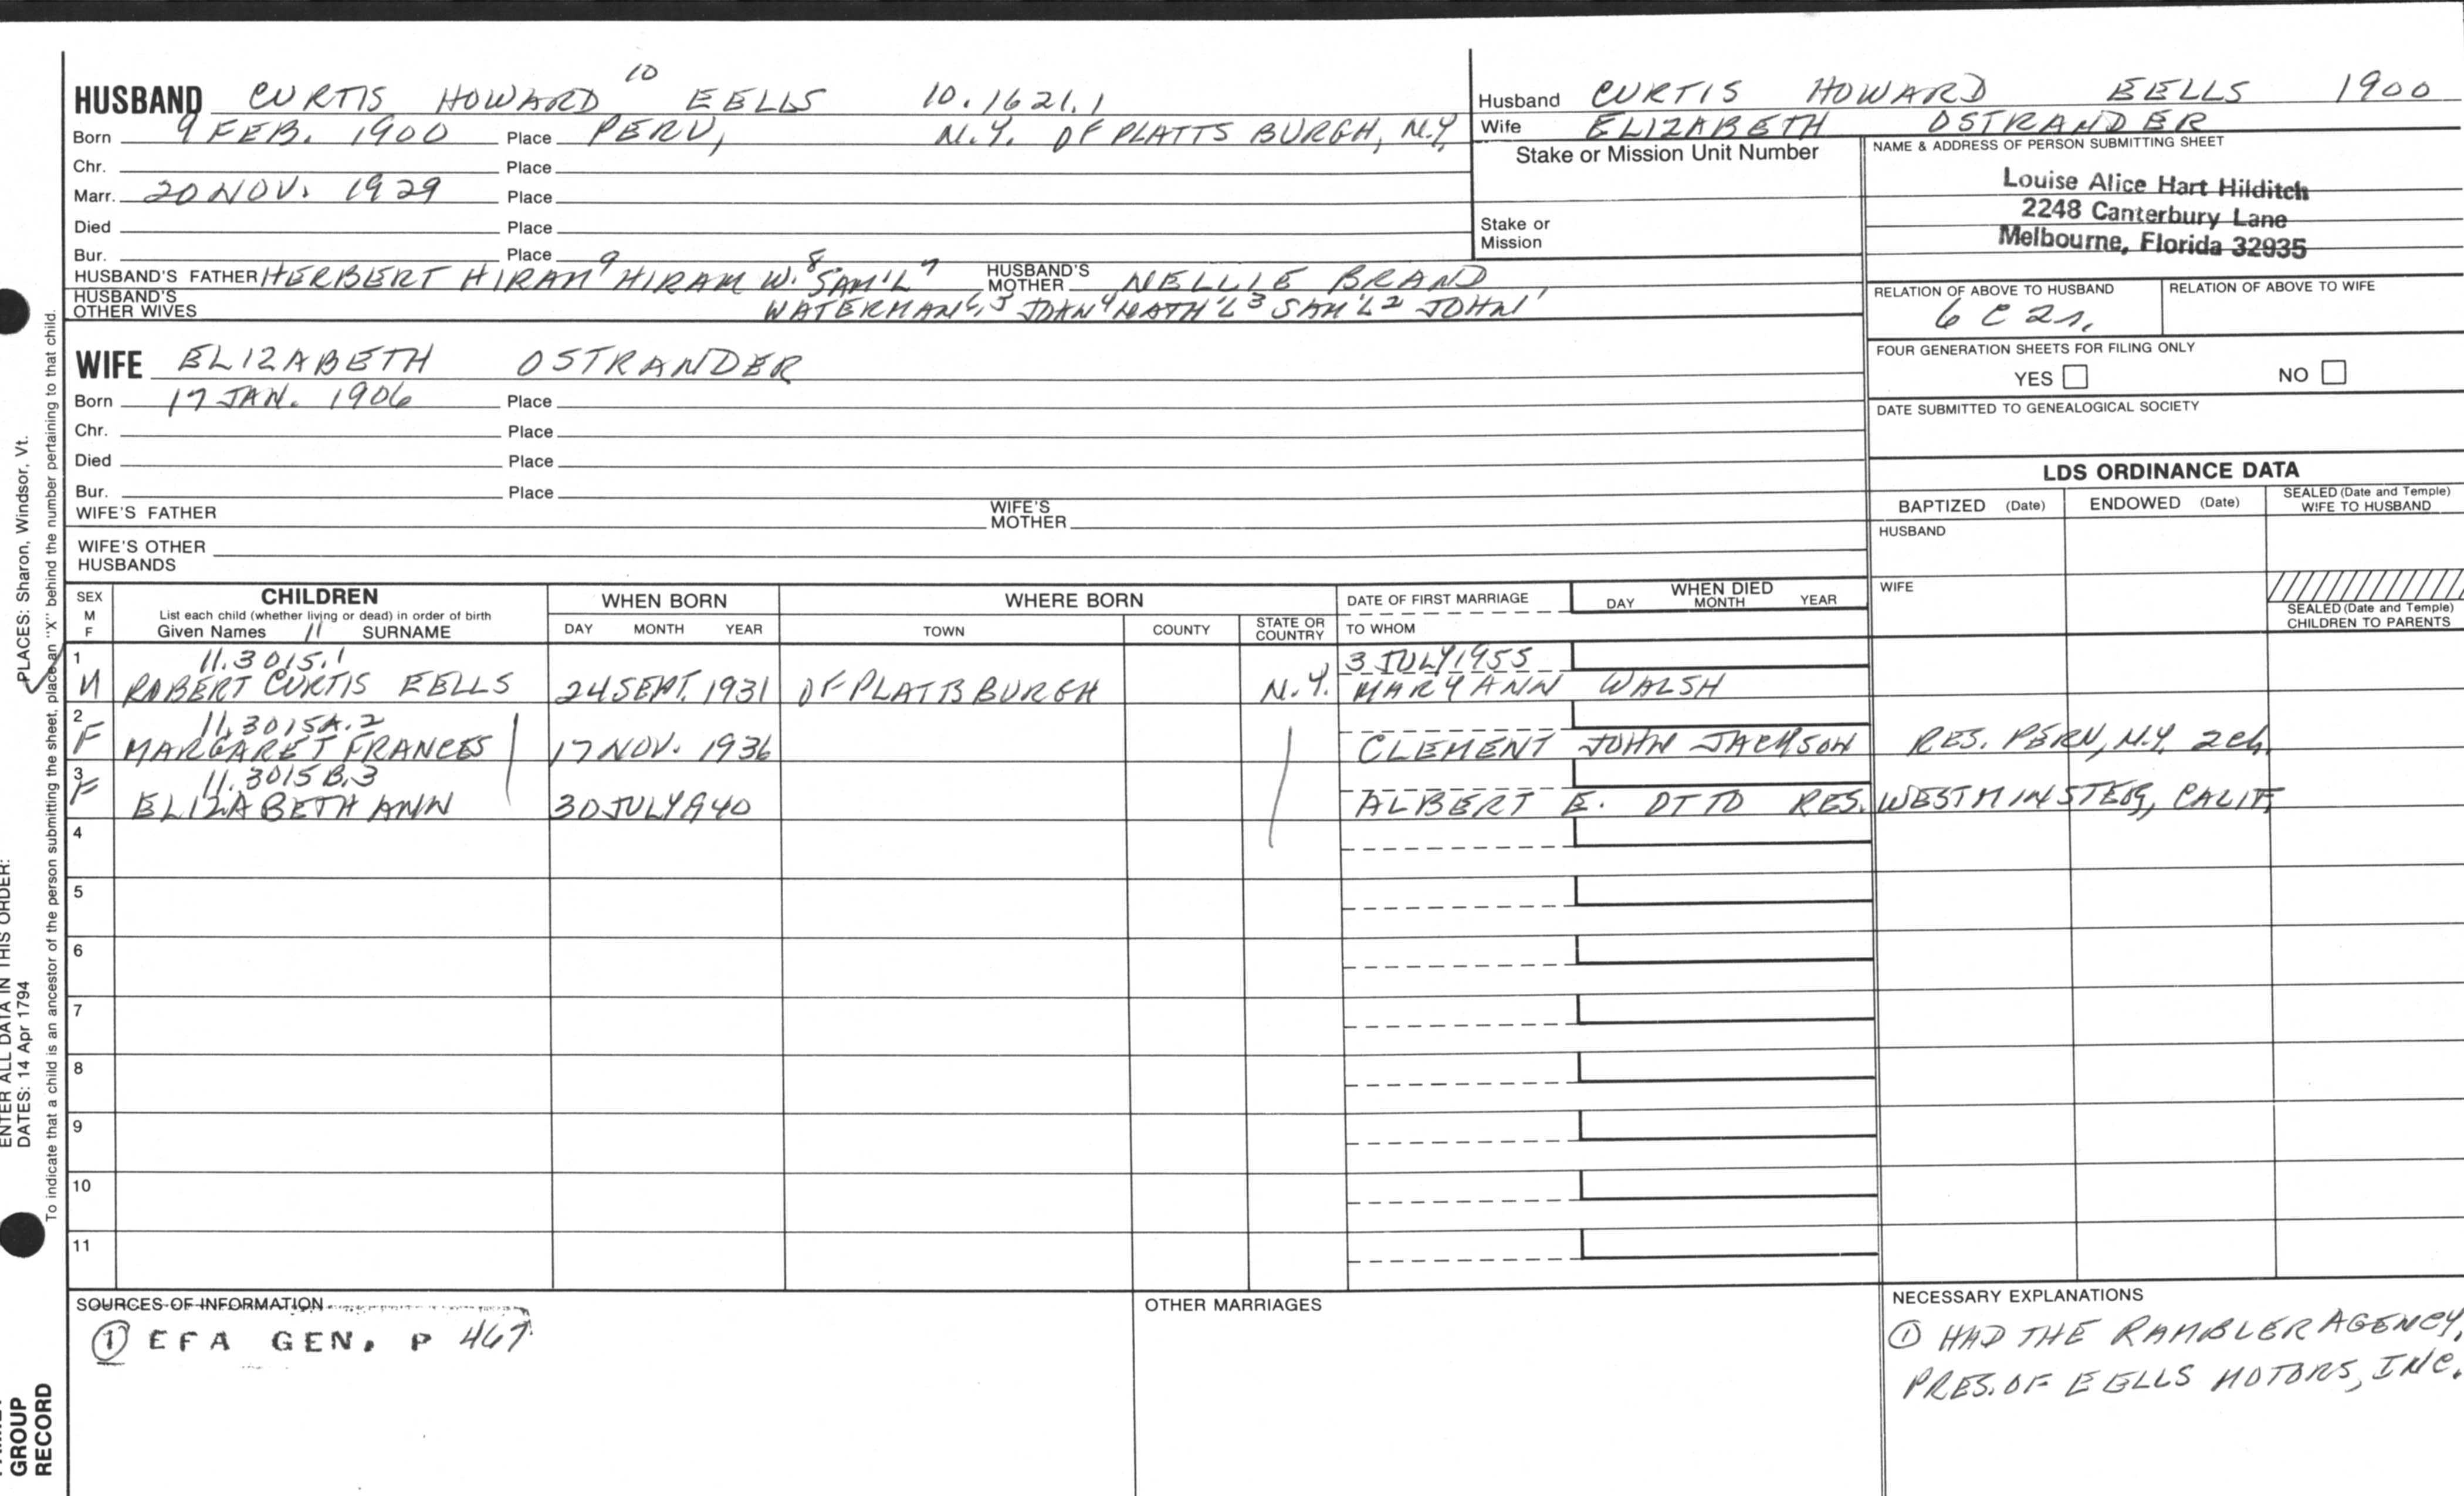 HUSBAND CURTIS HOWARD 10 EELLS 10.1621.1
Born 9 FEB. 1900 Place PERU, N.Y. OF PLATTS BURGH, N.Y.
Chr. Place
Marr. 20 NOV. 1929 Place
Died Place
Bur. Place
HUSBAND'S FATHER HERBERT HIRAM 9 HIRAM W. 8 SAM'L 7 HUSBAND'S MOTHER NELLIE BRAND
HUSBAND'S OTHER WIVES WATERMAN 6,5 JOHN 4 NATH'L 3 SAM'L 2 JOHN 1
Husband CURTIS HOWARD EELLS 1900
Wife ELIZABETH OSTRANDER
Stake or Mission Unit Number
Stake or Mission
NAME & ADDRESS OF PERSON SUBMITTING SHEET
Louise Alice Hart Hilditch
2248 Canterbury Lane
Melbourne, Florida 32935
RELATION OF ABOVE TO HUSBAND RELATION OF ABOVE TO WIFE
6 C 2 r.
FOUR GENERATION SHEETS FOR FILING ONLY
YES NO
DATE SUBMITTED TO GENEALOGICAL SOCIETY
WIFE ELIZABETH OSTRANDER
Born 17 JAN. 1906 Place
Chr. Place
Died Place
Bur. Place
WIFE'S FATHER WIFE'S MOTHER
WIFE'S OTHER HUSBANDS
LDS ORDINANCE DATA
BAPTIZED (Date) ENDOWED (Date) SEALED (Date and Temple) WIFE TO HUSBAND
HUSBAND
WIFE
SEALED (Date and Temple) CHILDREN TO PARENTS
SEX M F
CHILDREN
List each child (whether living or dead) in order of birth
Given Names 11 SURNAME
WHEN BORN
DAY MONTH YEAR
WHERE BORN
TOWN COUNTY STATE OR COUNTRY
DATE OF FIRST MARRIAGE
TO WHOM
WHEN DIED
DAY MONTH YEAR
1 11.3015.1 3 JULY 1955
M ROBERT CURTIS EELLS 24 SEPT. 1931 OF PLATTSBURGH N.Y. MARY ANN WALSH
2 11.3015A.2
F MARGARET FRANCES 17 NOV. 1936 CLEMENT JOHN JACKSON RES. PERU, N.Y. 2 ch.
3 11.3015B.3
F ELIZABETH ANN 30 JULY 1940 ALBERT E. OTTO RES. WESTMINSTER, CALIF.
4
5
6
7
8
9
10
11
SOURCES OF INFORMATION
① EFA GEN. P 467
OTHER MARRIAGES
NECESSARY EXPLANATIONS
① HAD THE RAMBLER AGENCY,
PRES. OF EELLS MOTORS, INC.
ENTER ALL DATA IN THIS ORDER:
DATES: 14 Apr 1794 PLACES: Sharon, Windsor, Vt.
To indicate that a child is an ancestor of the person submitting the sheet, place an "X" behind the number pertaining to that child.
GROUP
RECORD